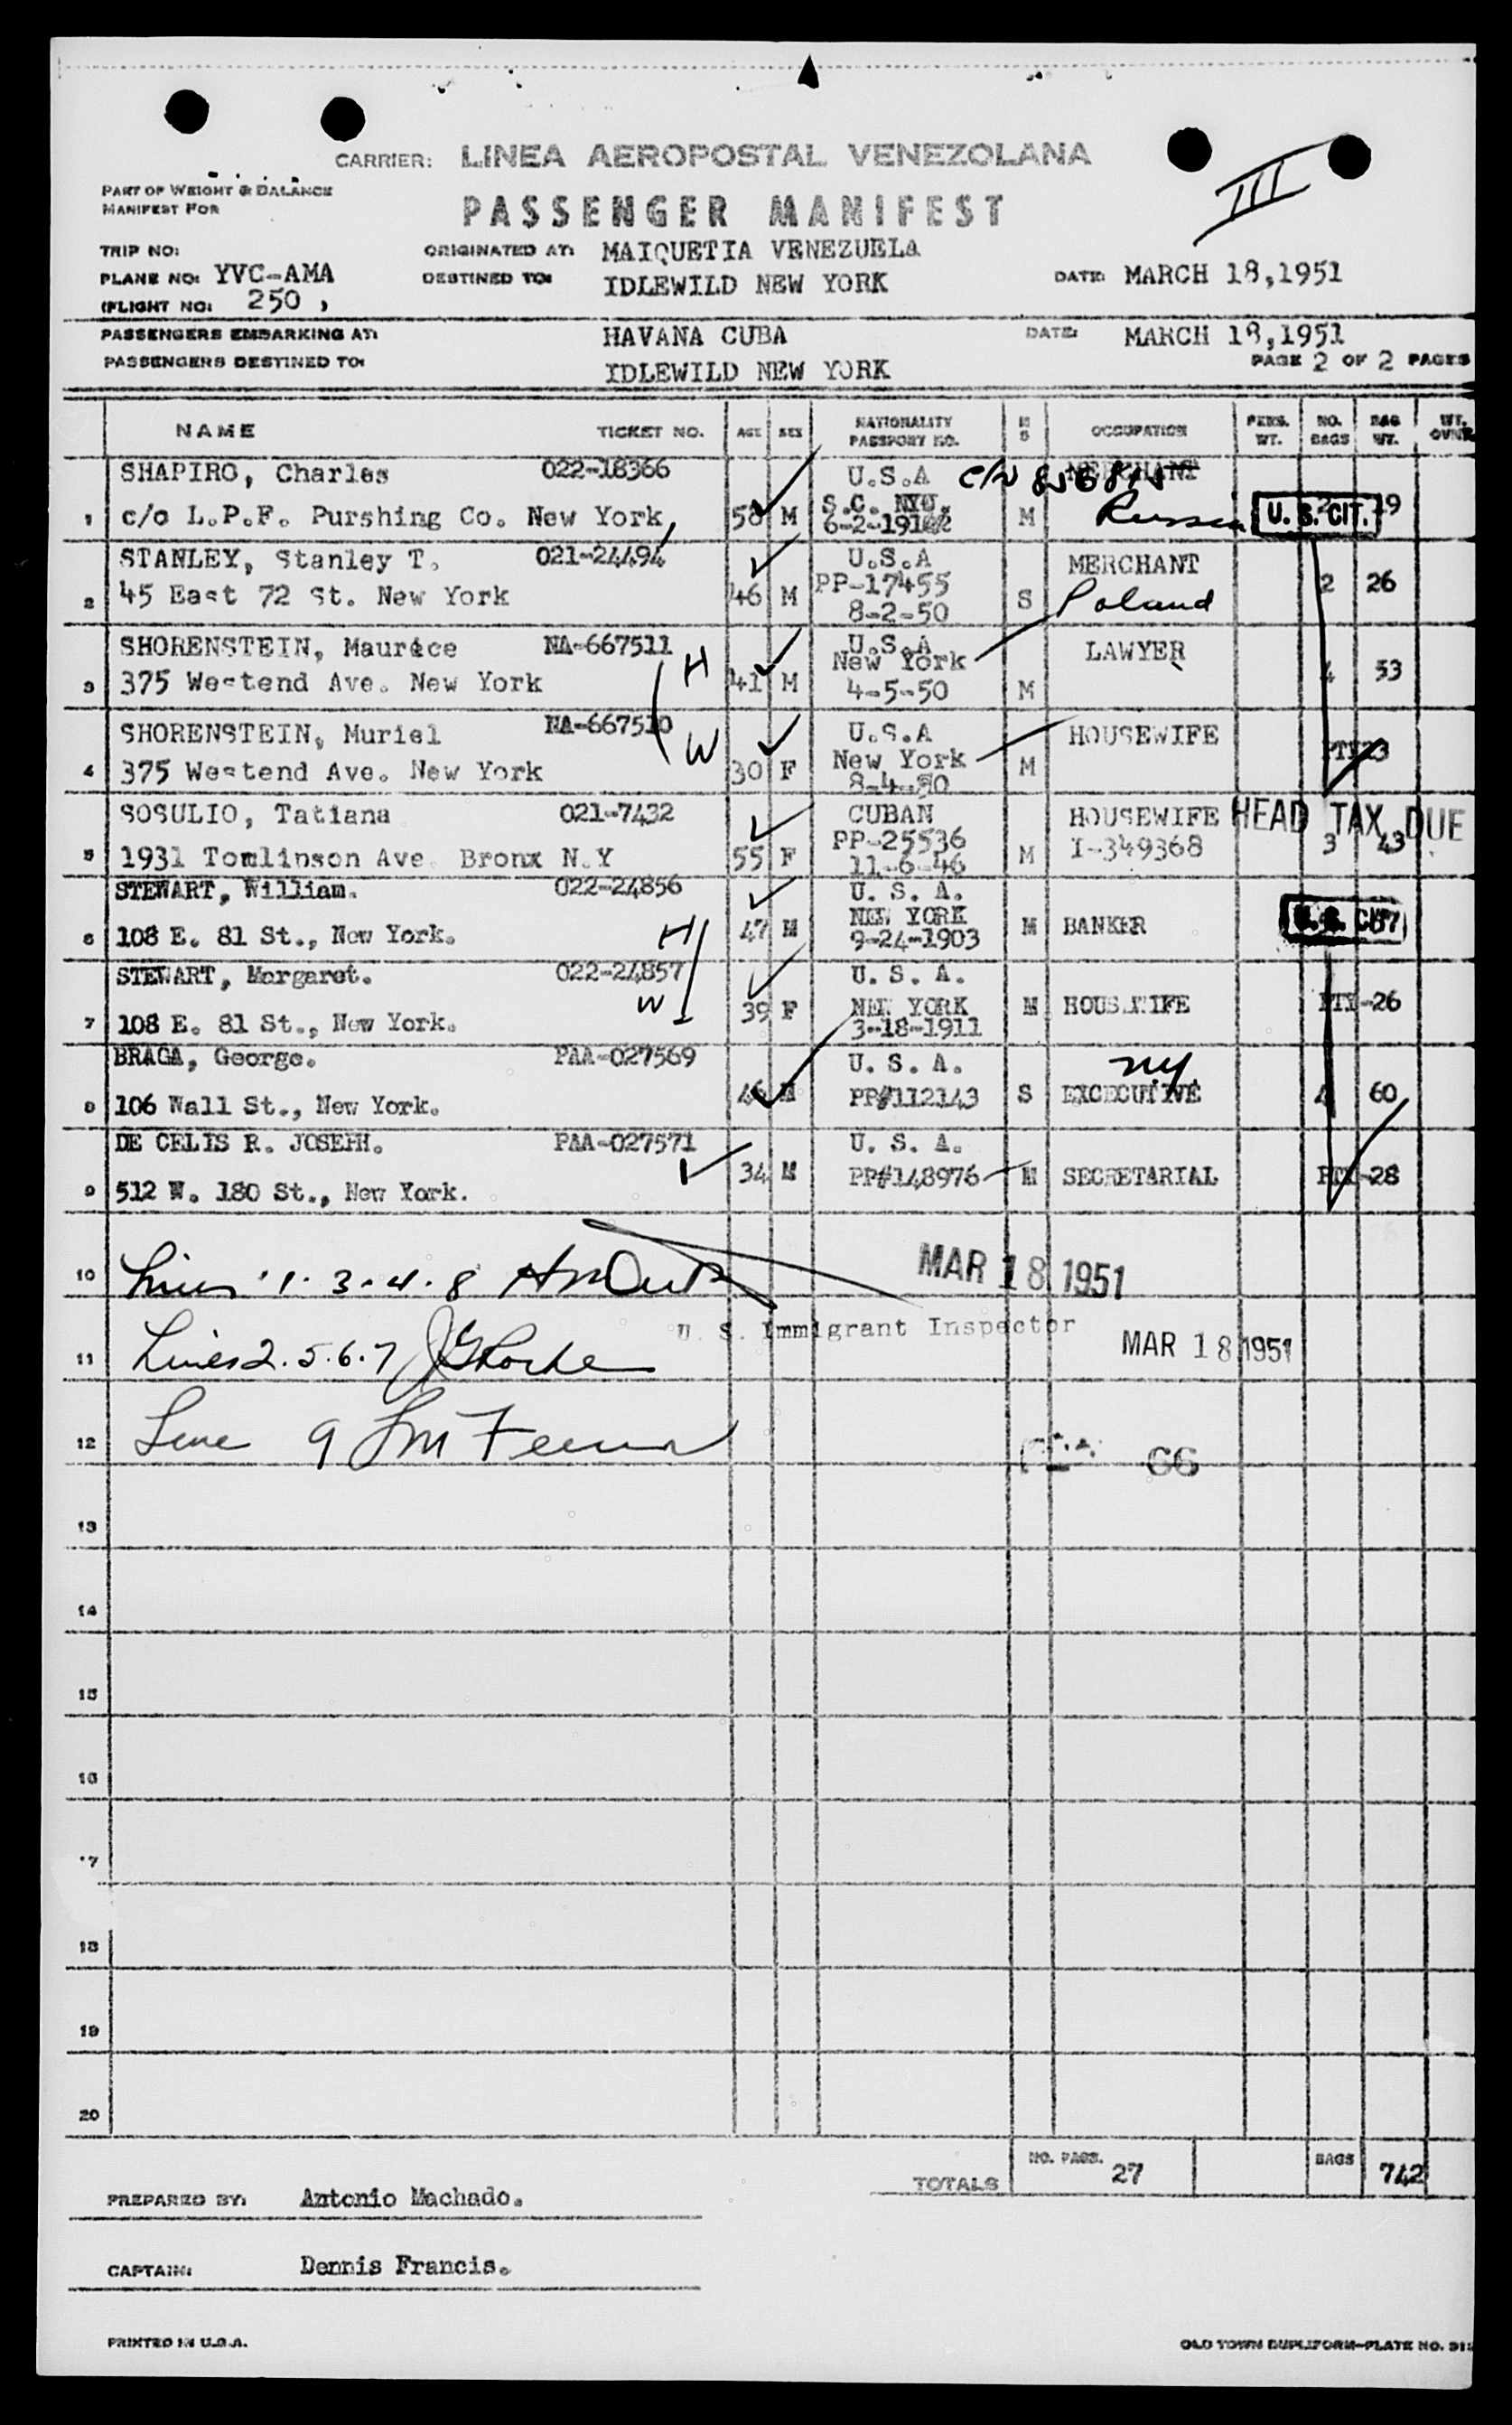 III
CARRIER: LINEA AEROPOSTAL VENEZOLANA
PART OF WEIGHT & BALANCE
MANIFEST FOR
PASSENGER MANIFEST
TRIP NO: ORIGINATED AT: MAIQUETIA VENEZUELA
PLANE NO: YVC-AMA DESTINED TO: IDLEWILD NEW YORK DATE: MARCH 18,1951
(FLIGHT NO: 250 ,
PASSENGERS EMBARKING AT: HAVANA CUBA DATE: MARCH 18,1951
PASSENGERS DESTINED TO: IDLEWILD NEW YORK PAGE 2 OF 2 PAGES
NAME TICKET NO. AGE SEX NATIONALITY PASSPORT NO. M S OCCUPATION PERS. WT. NO. BAGS BAG WT. WT. OVNR
SHAPIRO, Charles 022-18366 U.S.A MERCHANT
1 c/o L.P.F. Purshing Co. New York, 58 M S.C. NYU. M Russia U. S. CIT. 2 19
6-2-1912
STANLEY, Stanley T. 021-24494 U.S.A MERCHANT
2 45 East 72 St. New York 46 M PP-17455 S Poland 2 26
8-2-50
SHORENSTEIN, Maurice NA-667511 H U.S.A LAWYER
3 375 Westend Ave. New York 41 M New York M 4 53
4-5-50
SHORENSTEIN, Muriel NA-667510 W U.S.A HOUSEWIFE
4 375 Westend Ave. New York 30 F New York M PTY 23
8-4-50
SOSULIO, Tatiana 021-7432 CUBAN HOUSEWIFE HEAD TAX DUE
5 1931 Tomlinson Ave. Bronx N.Y 55 F PP-25536 M I-349368 3 43
11-6-46
STEWART, William. 022-24856 U. S. A.
6 108 E. 81 St., New York. H 47 M NEW YORK M BANKER U. S. CIT
9-24-1903
STEWART, Margaret. 022-24857 U. S. A.
7 108 E. 81 St., New York. W 39 F NEW YORK M HOUSEWIFE PTY-26
3-18-1911
BRAGA, George. PAA-027569 U. S. A. NY.
8 106 Wall St., New York. 46 M PP#112143 S EXCECUTIVE 4 60
DE CELIS R. JOSEPH. PAA-027571 U. S. A.
9 512 W. 180 St., New York. 34 M PP#148976 M SECRETARIAL PTY-28
10 Lines 1-3-4-8 MAR 18 1951
U. S. Immigrant Inspector
11 Lines 2.5.6.7 MAR 18 1951
12 Line 9 66
13
14
15
16
17
18
19
20
TOTALS NO. PASS. 27 BAGS 742
PREPARED BY: Antonio Machado.
CAPTAIN: Dennis Francis.
PRINTED IN U.S.A. OLD TOWN DUPLIFORM—PLATE NO.